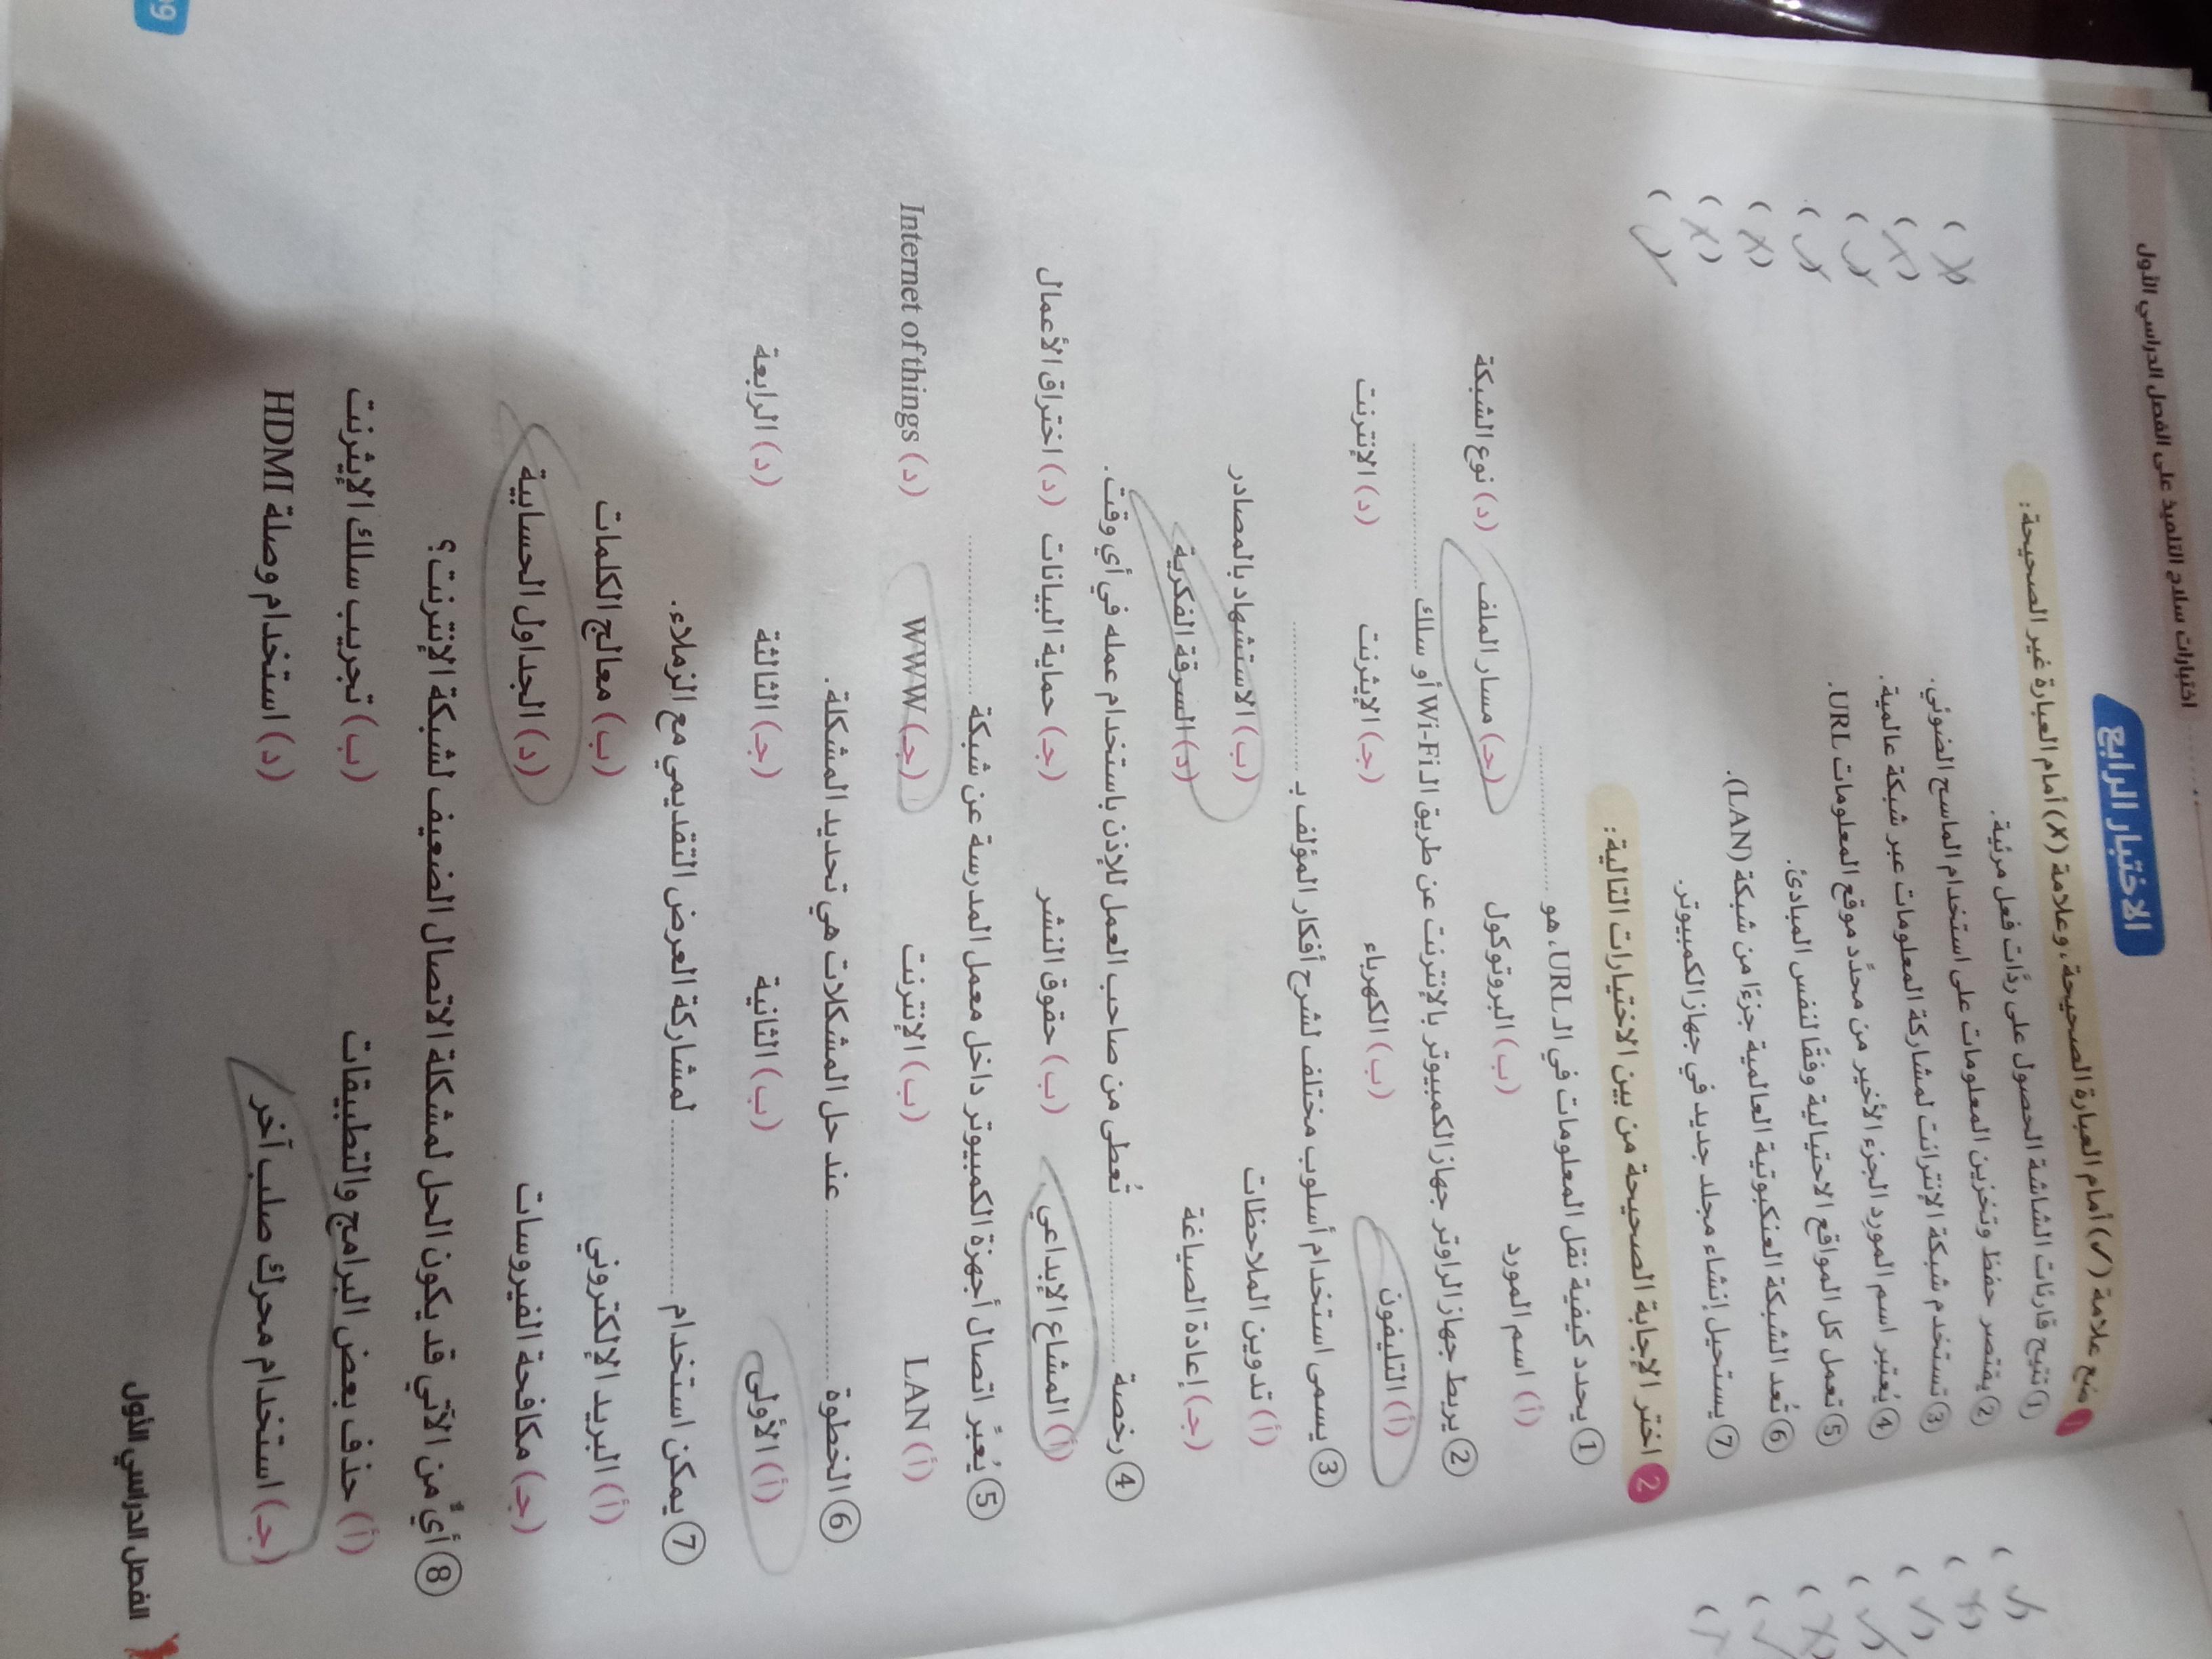 اختبارات سلاح التلميذ على الفصل الدراسي الأول
الاختبار الرابع
1 ضع علامة (✓) أمام العبارة الصحيحة، وعلامة (X) أمام العبارة غير الصحيحة:
① تتيح قارئات الشاشة الحصول على ردَّات فعل مرئية. (X)
② يقتصر حفظ وتخزين المعلومات على استخدام الماسح الضوئي. (X)
③ تستخدم شبكة الإنترانت لمشاركة المعلومات عبر شبكة عالمية. (✓)
④ يُعتبر اسم المورد الجزء الأخير من محدِّد موقع المعلومات URL. (✓)
⑤ تعمل كل المواقع الاحتيالية وفقًا لنفس المبادئ. (X)
⑥ تُعد الشبكة العنكبوتية العالمية جزءًا من شبكة (LAN). (X)
⑦ يستحيل إنشاء مجلد جديد في جهاز الكمبيوتر. (✓)
2 اختر الإجابة الصحيحة من بين الاختيارات التالية:
① يحدد كيفية نقل المعلومات في الـ URL، هو ..............
(أ) اسم المورد (ب) البروتوكول (جـ) مسار الملف (د) نوع الشبكة
② يربط جهاز الراوتر جهاز الكمبيوتر بالإنترنت عن طريق الـ Wi-Fi أو سلك ..............
(أ) التليفون (ب) الكهرباء (جـ) الإيثرنت (د) الإنترنت
③ يسمى استخدام أسلوب مختلف لشرح أفكار المؤلف بـ ..............
(أ) تدوين الملاحظات (ب) الاستشهاد بالمصادر
(جـ) إعادة الصياغة (د) السرقة الفكرية
④ رخصة .............. تُعطى من صاحب العمل للإذن باستخدام عمله في أي وقت.
(أ) المشاع الإبداعي (ب) حقوق النشر (جـ) حماية البيانات (د) اختراق الأعمال
⑤ يُعبَّر اتصال أجهزة الكمبيوتر داخل معمل المدرسة عن شبكة ..............
(أ) LAN (ب) الإنترنت (جـ) WWW (د) Internet of things
⑥ الخطوة .............. عند حل المشكلات هي تحديد المشكلة.
(أ) الأولى (ب) الثانية (جـ) الثالثة (د) الرابعة
⑦ يمكن استخدام .............. لمشاركة العرض التقديمي مع الزملاء.
(أ) البريد الإلكتروني (ب) معالج الكلمات
(جـ) مكافحة الفيروسات (د) الجداول الحسابية
⑧ أيٌّ من الآتي قد يكون الحل لمشكلة الاتصال الضعيف لشبكة الإنترنت؟
(أ) حذف بعض البرامج والتطبيقات (ب) تجريب سلك الإيثرنت
(جـ) استخدام محرك صلب آخر (د) استخدام وصلة HDMI
الفصل الدراسي الأول